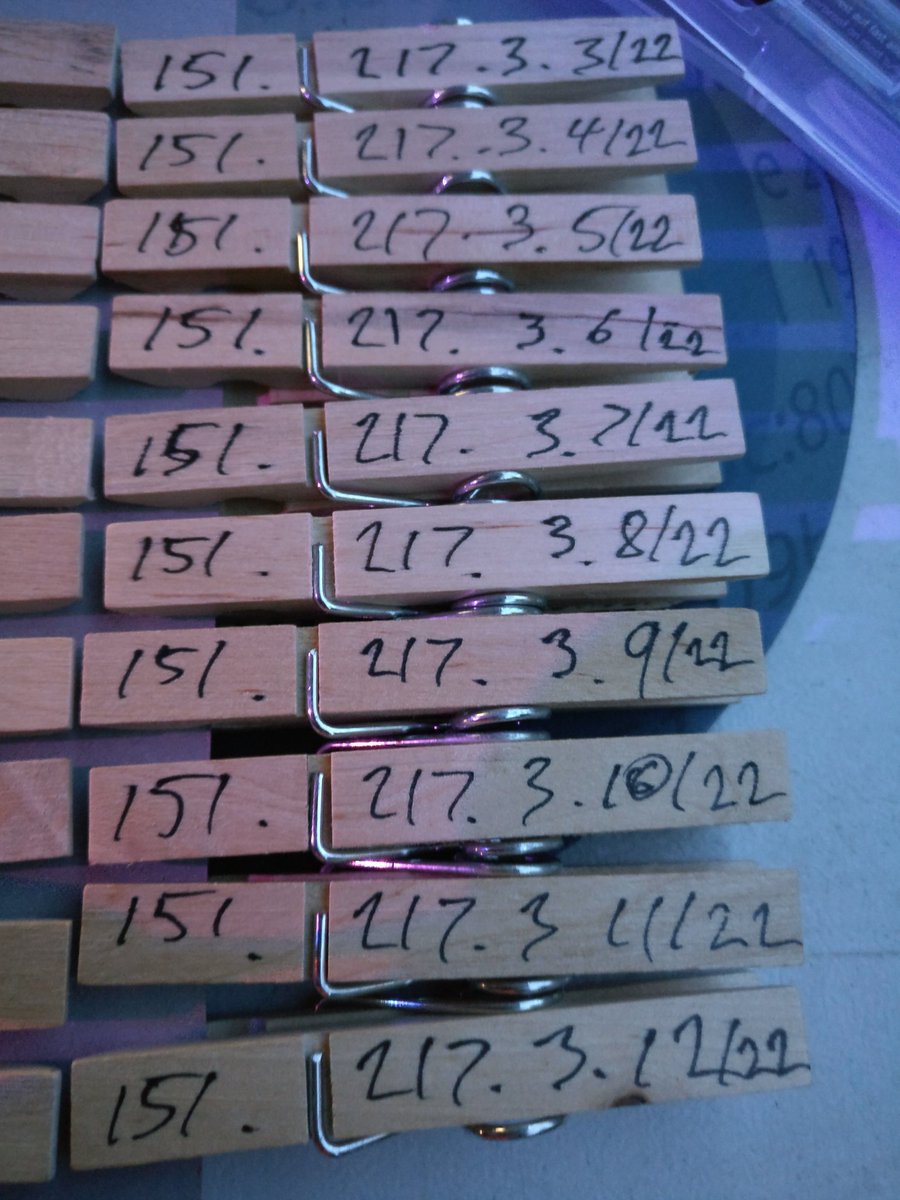 151. 217.3.3/22
151. 217.3.4/22
151. 217.3.5/22
151. 217.3.6/22
151. 217.3.7/22
151. 217.3.8/22
151. 217.3.9/22
151. 217.3.10/22
151. 217.3 11/22
151. 217.3.12/22